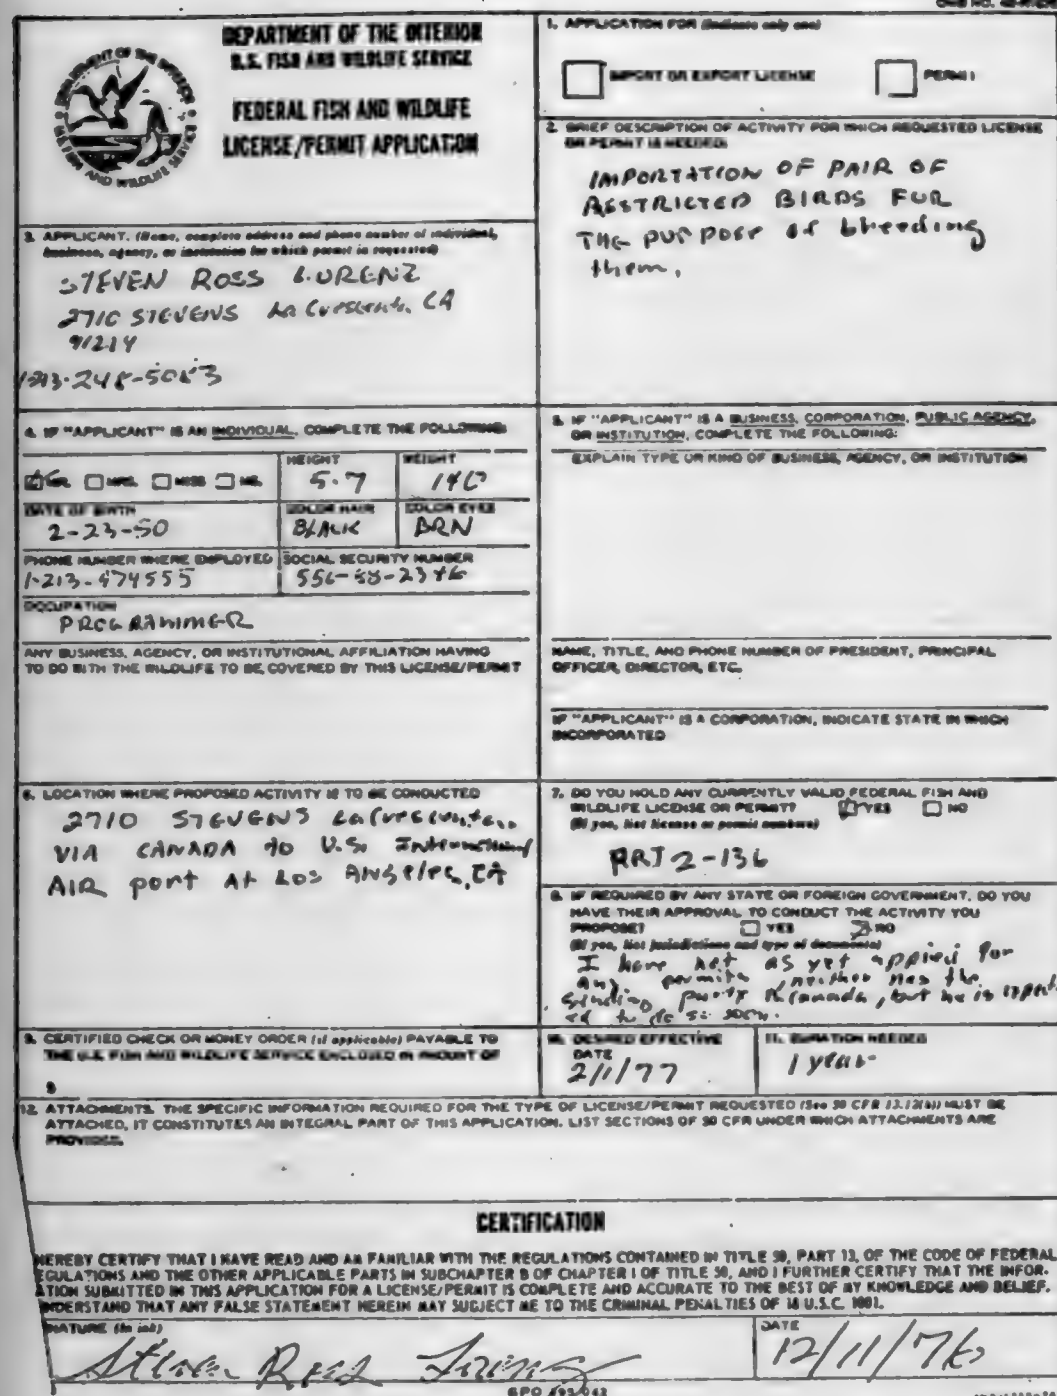 DEPARTMENT OF THE INTERIOR
U.S. FISH AND WILDLIFE SERVICE
FEDERAL FISH AND WILDLIFE
LICENSE/PERMIT APPLICATION
1. APPLICATION FOR (Indicate only one)
IMPORT OR EXPORT LICENSE
PERMIT
2. BRIEF DESCRIPTION OF ACTIVITY FOR WHICH REQUESTED LICENSE
OR PERMIT IS NEEDED.
IMPORTATION OF PAIR OF
RESTRICTED BIRDS FOR
THE purpose of breeding
them.
3. APPLICANT. (Name, complete address and phone number of individual,
business, agency, or institution for which permit is requested)
STEVEN ROSS LORENZ
2710 STEVENS La Crescenta, CA
91214
4. IF "APPLICANT" IS AN INDIVIDUAL, COMPLETE THE FOLLOWING:
MR. MRS. MISS MS.
HEIGHT
5-7
WEIGHT
140
DATE OF BIRTH
2-23-50
COLOR HAIR
BLACK
COLOR EYES
BRN
PHONE NUMBER WHERE EMPLOYED
SOCIAL SECURITY NUMBER
OCCUPATION
PROGRAMMER
ANY BUSINESS, AGENCY, OR INSTITUTIONAL AFFILIATION HAVING
TO DO WITH THE WILDLIFE TO BE COVERED BY THIS LICENSE/PERMIT
5. IF "APPLICANT" IS A BUSINESS, CORPORATION, PUBLIC AGENCY,
OR INSTITUTION, COMPLETE THE FOLLOWING:
EXPLAIN TYPE OR KIND OF BUSINESS, AGENCY, OR INSTITUTION
NAME, TITLE, AND PHONE NUMBER OF PRESIDENT, PRINCIPAL
OFFICER, DIRECTOR, ETC.
IF "APPLICANT" IS A CORPORATION, INDICATE STATE IN WHICH
INCORPORATED
6. LOCATION WHERE PROPOSED ACTIVITY IS TO BE CONDUCTED
2710 STEVENS La Crescenta,
VIA CANADA to U.S. International
AIR port At Los Angeles, CA
7. DO YOU HOLD ANY CURRENTLY VALID FEDERAL FISH AND
WILDLIFE LICENSE OR PERMIT? YES NO
(If yes, list license or permit numbers)
PRT 2-136
8. IF REQUIRED BY ANY STATE OR FOREIGN GOVERNMENT, DO YOU
HAVE THEIR APPROVAL TO CONDUCT THE ACTIVITY YOU
PROPOSE? YES NO
(If yes, list jurisdictions and type of documents)
I have not as yet applied for
any permits, neither has the
sending party in Canada, but he is expect-
ed to do so soon.
9. CERTIFIED CHECK OR MONEY ORDER (if applicable) PAYABLE TO
THE U.S. FISH AND WILDLIFE SERVICE ENCLOSED IN AMOUNT OF
$
10. DESIRED EFFECTIVE
DATE
2/1/77
11. DURATION NEEDED
1 year
12. ATTACHMENTS. THE SPECIFIC INFORMATION REQUIRED FOR THE TYPE OF LICENSE/PERMIT REQUESTED (See 50 CFR 13.12(b)) MUST BE
ATTACHED, IT CONSTITUTES AN INTEGRAL PART OF THIS APPLICATION. LIST SECTIONS OF 50 CFR UNDER WHICH ATTACHMENTS ARE
PROVIDED.
CERTIFICATION
HEREBY CERTIFY THAT I HAVE READ AND AM FAMILIAR WITH THE REGULATIONS CONTAINED IN TITLE 50, PART 13, OF THE CODE OF FEDERAL
EGULATIONS AND THE OTHER APPLICABLE PARTS IN SUBCHAPTER B OF CHAPTER I OF TITLE 50, AND I FURTHER CERTIFY THAT THE INFOR-
ATION SUBMITTED IN THIS APPLICATION FOR A LICENSE/PERMIT IS COMPLETE AND ACCURATE TO THE BEST OF MY KNOWLEDGE AND BELIEF.
NDERSTAND THAT ANY FALSE STATEMENT HEREIN MAY SUBJECT ME TO THE CRIMINAL PENALTIES OF 18 U.S.C. 1001.
NATURE (In ink)
Steven Ross Lorenz
DATE
12/11/76